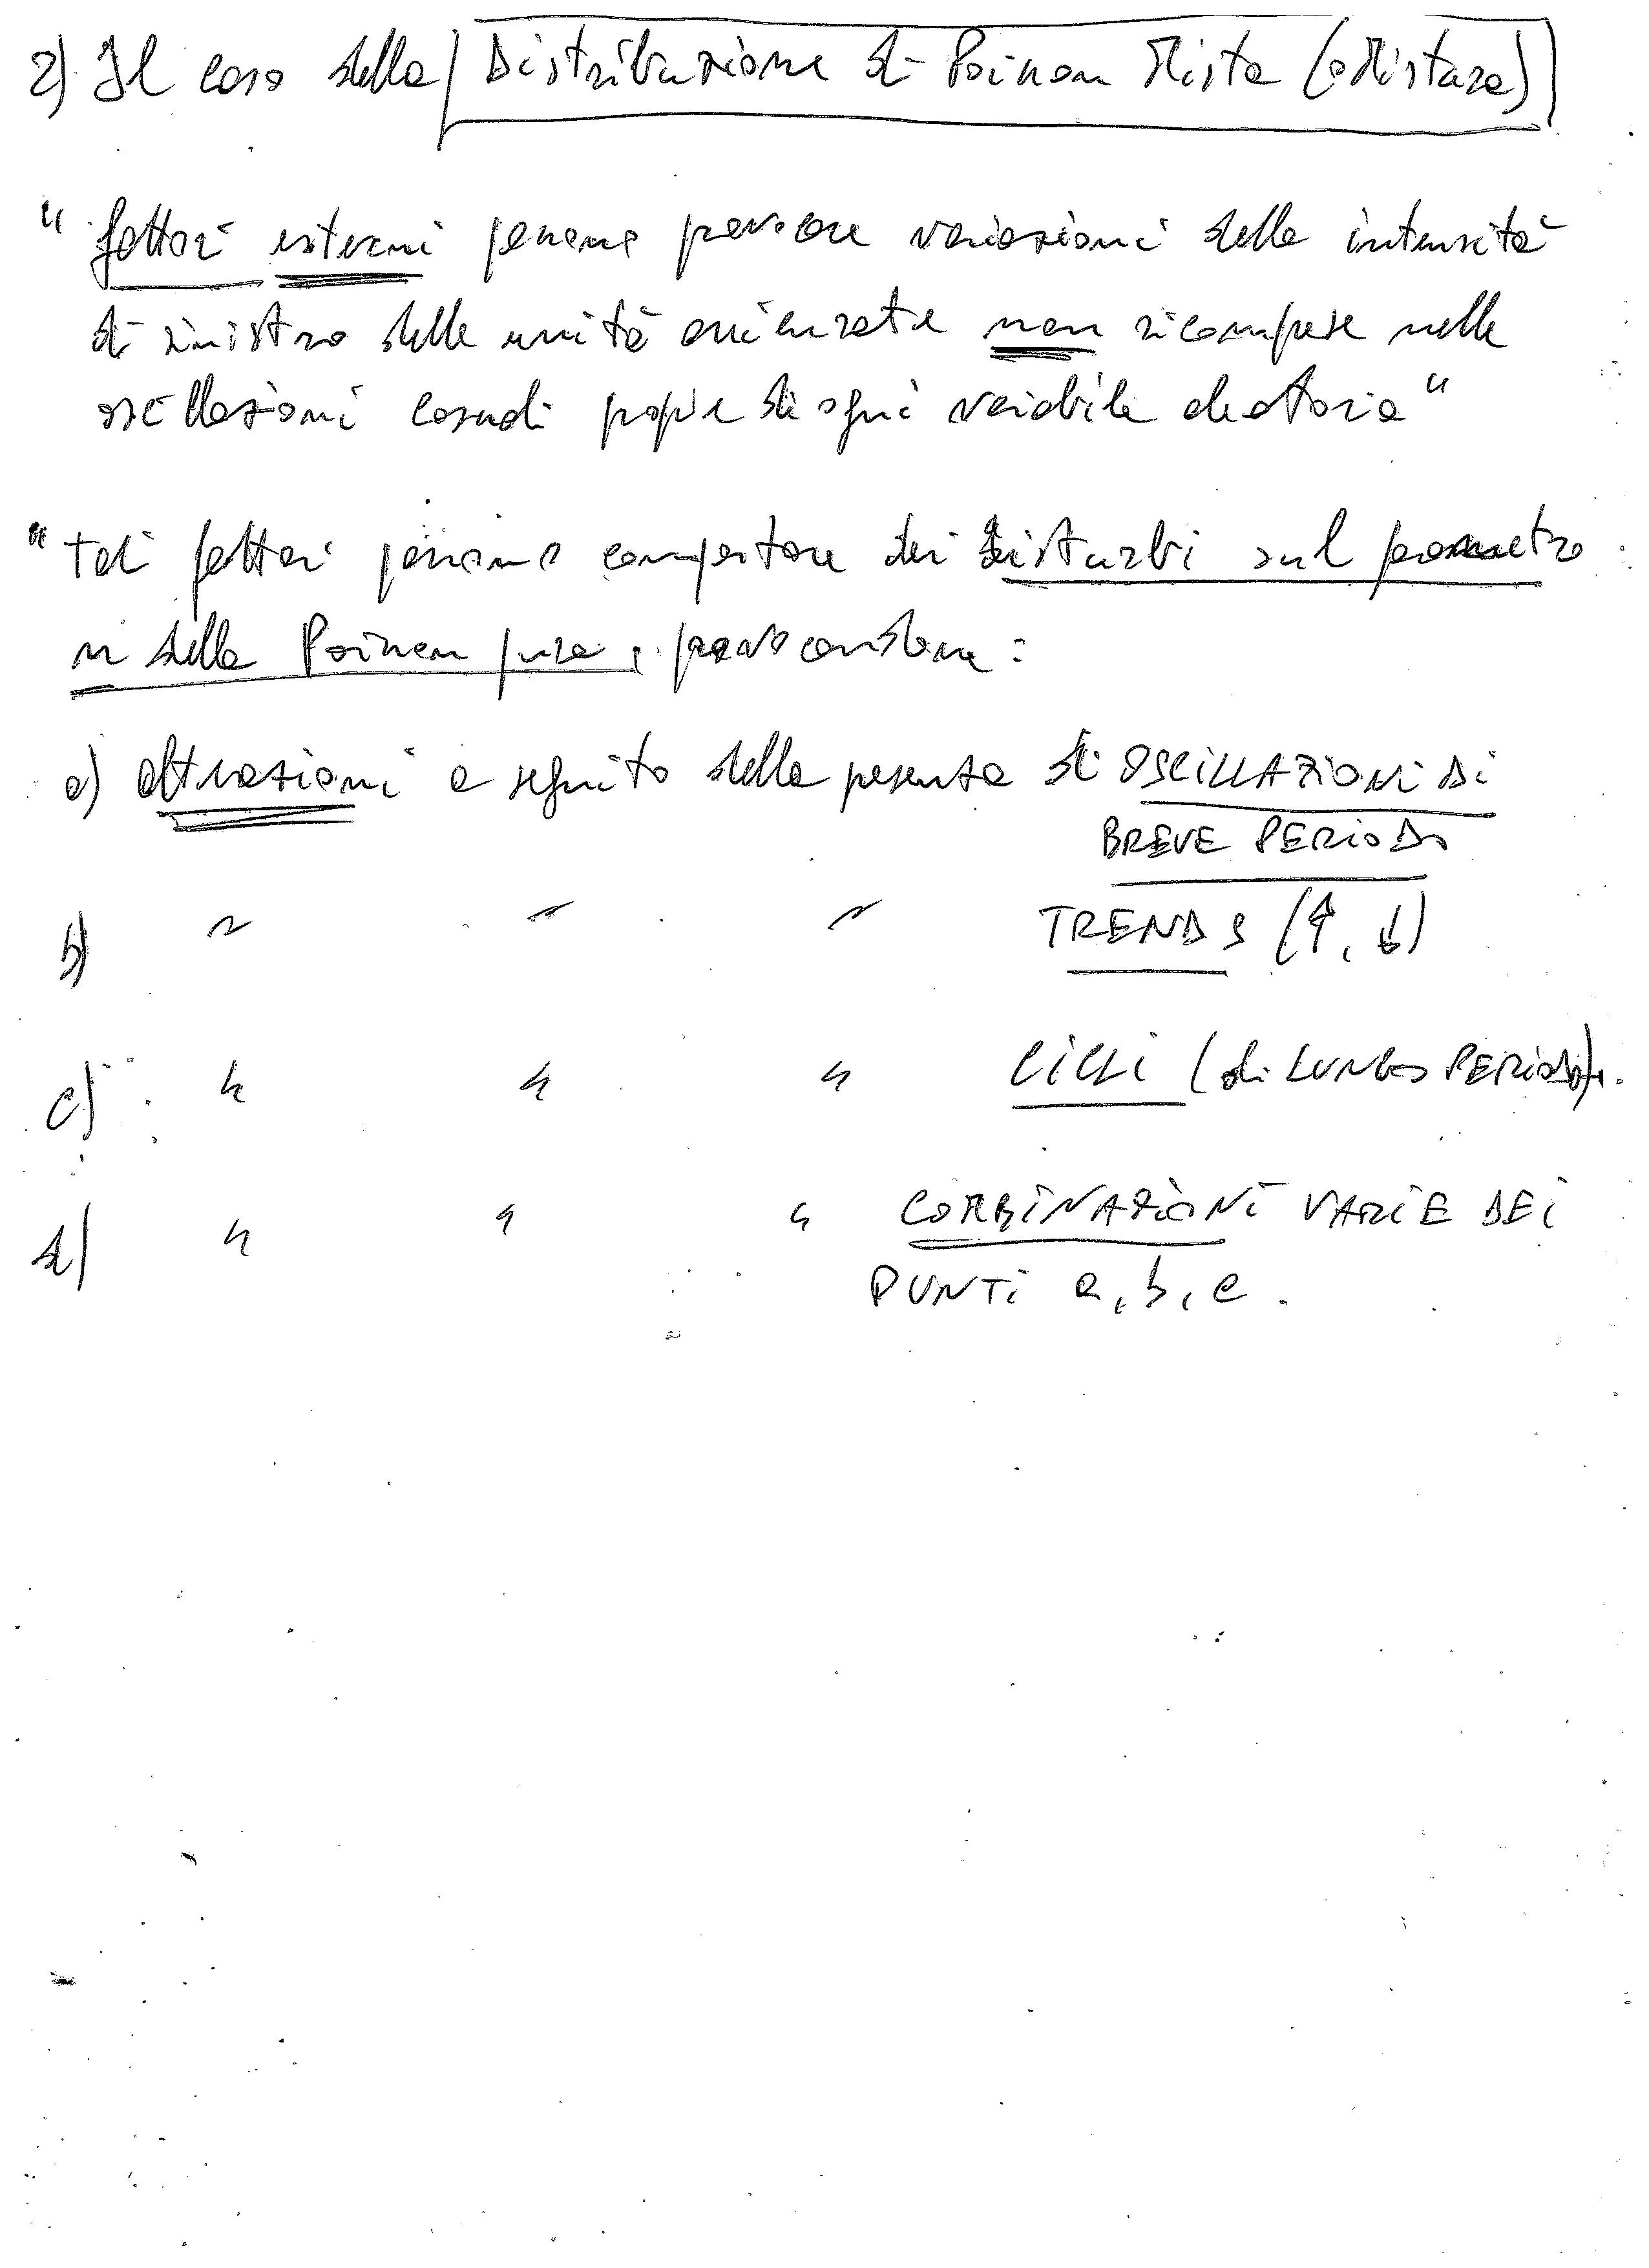 2) Il caso della Distribuzione di Poisson Mista (o Mistura)
" fattori esterni possono provocare variazioni della intensità
di sinistro delle unità assicurate non ricomprese nelle
oscillazioni casuali proprie di ogni variabile aleatoria "
" tali fattori possono comportare dei disturbi sul parametro
n della Poisson pura, provocandone :
a) alterazioni a seguito della presenza di OSCILLAZIONI DI
BREVE PERIODO
b) " " " TRENDS (↑, ↓)
c) " " " CICLI (di LUNGO PERIODO).
d) " " " COMBINAZIONI VARIE DEI
PUNTI a, b, c .